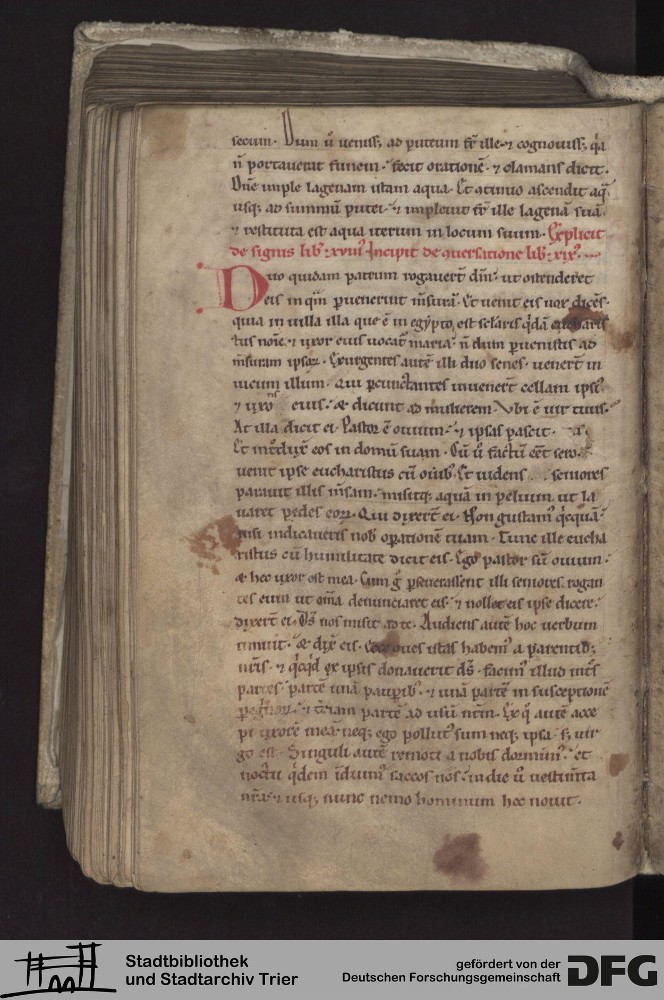 secum. Dum ů uenisſ; ad puteum fr̄ ille. ⁊ cognouisſ; q̇a
n̄ portauerat funem. fecit orationē. ⁊ clamans dicit.
Dn̄e imple lagenam istam aqua. Et ꝯtinuo ascendit aq̄
usq; ad summū putei. ⁊ impleuit fr̄ ille lagenā suā.
⁊ restituta est aqua iterum in locum suum. Explicit
de signis lib᷒ xviii᷒ Incipit de ꝯuersatione lib᷒ xix᷒.
Duo quidam patrum rogauer̄t dn̄m. ut ostenderet
eis in qm̄ peruenerint m̄surā. Et uenit eis uox dicēs.
quia in uilla illa que ē in egypto. est sclaris q̇dā eucharis
tus noīe. ⁊ uxor eius uocat᷒ maria. n̄ dum peruenistis ad
m̄suram ipsoꝝ. Exurgentes autē illi duo senes. uener̄t in
uicum illum. Qui ꝑcunctantes inuener̄t cellam ipsi᷒
⁊ uxo eius. & dicunt ad mulierem. Vbi ē uir tuus.
At illa dicit ei. Pastor ē ouium. ⁊ ipsas pascit.
Et int᷒dux̄ eos in domū suam. Cū ů factū eēt sero.
uenit ipse eucharistus cū ouib᷒. Et uidens seniores
parauit illis m̄sam. misitq; aquā in peluim ut la
uaret pedes eoꝝ. Qui dixer̄t ei. Non gustam᷒ q̇cquā.
nisi indicaueris nob᷒ operationē tuam. Tunc ille eucha
ristus cū humilitate dicit eis. Ego pastor sū ouium.
& hec uxor est mea. Cum ḡ perseuerassent illi seniores rogan
tes eum ut om̄ia denunciaret eis. ⁊ nollet eis ipse dicere.
dixer̄t ei. Ds̄ nos misit ad te. Audiens autē hoc uerbum
timuit. & dix̄ eis. Ecce oues istas habem᷒ a parentib;
nr̄is. ⁊ q̇cq̇d ex ipsis donauerit ds̄. facim᷒ illud int᷒s
partes. partē unā pauꝑib᷒. ⁊ unā partē in susceptionē
peg̊rinoꝝ. ⁊ t̄ciam partē ad usū nr̄m. Ex q̊ autē acce
pi uxorē meā. neq; ego pollut᷒ sum neq; ipsa. s; uir
go est. Singuli autē remoti a nobis dormim᷒. et
noctu q̇dem īduim᷒ saccos nos. in die ů uestim̄ta
nr̄a. ⁊ usq; nunc nemo hominum hec nouit.
Stadtbibliothek
und Stadtarchiv Trier
gefördert von der
Deutschen Forschungsgemeinschaft
DFG